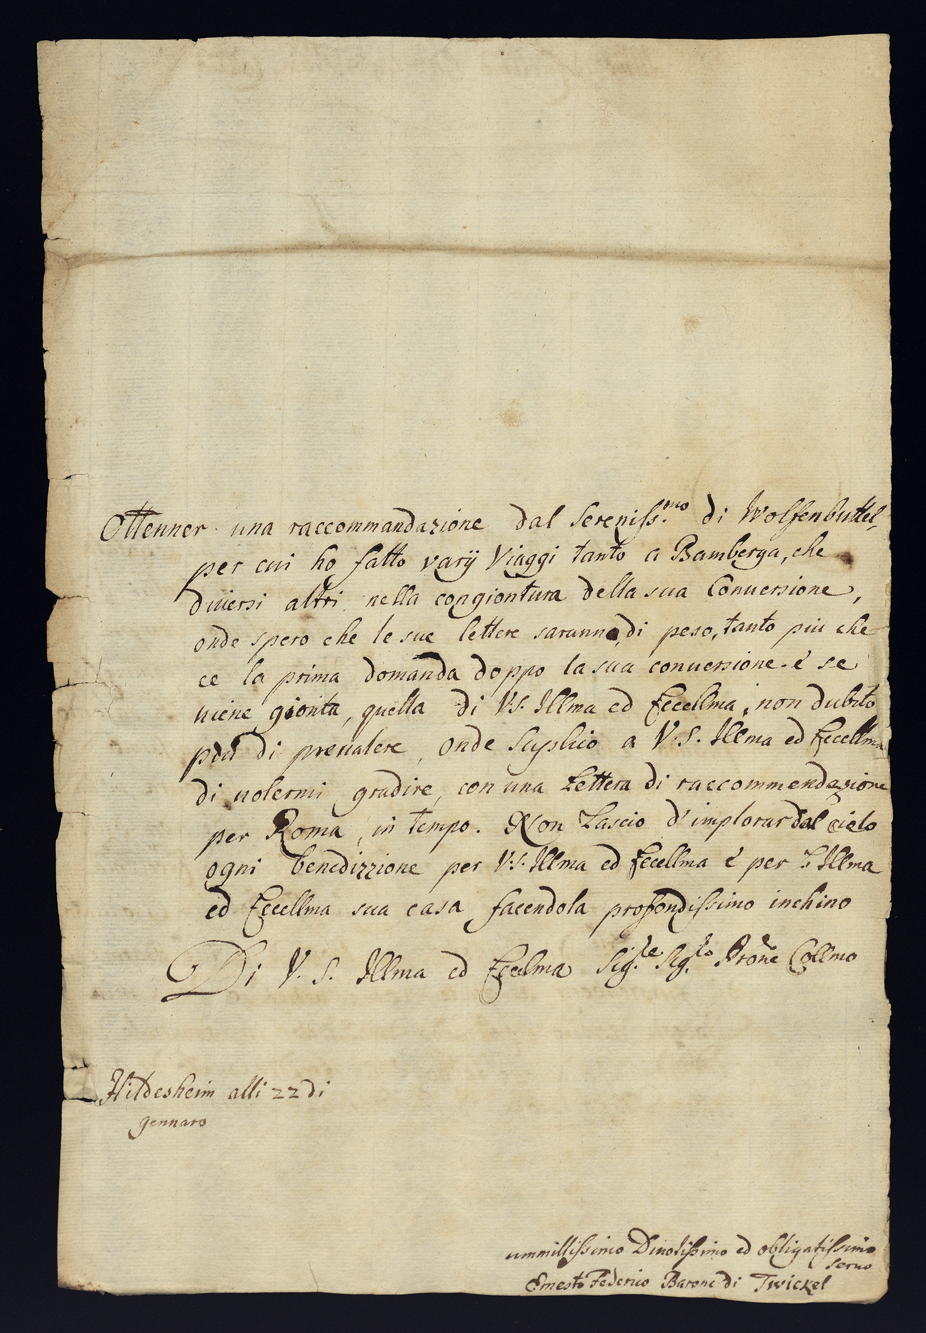 Ottenner una raccommandazione dal Sereniss.mo di Wolfenbuttel
per cui ho fatto varij Viaggi tanto a Bamberga, che
diuersi altri nella congiontura della sua Conuersione,
onde spero che le sue lettere saranno di peso, tanto piu che
ce la prima domanda doppo la sua conuersione é se
uiene gionta, quella di V.S. Illma ed Eccellma, non dubito
più di preualere, onde Suplico a V.S. Illma ed Eccellma
di uolermi gradire, con una Lettera di raccommendazione
per Roma, in tempo. Non Lascio d'implorar dal cielo
ogni benedizzione per V.S. Illma ed Eccellma é per L'Illma
ed Eccellma sua casa facendola profondissimo inchino
Di V. S. Illma ed Eccelma Sig.re Sig.re Prone Collmo
Hildesheim alli 22 di
gennaro
ummillissimo Diuotissimo ed obligatissimo
seruo
Ernesto Federico Barone di Twickel